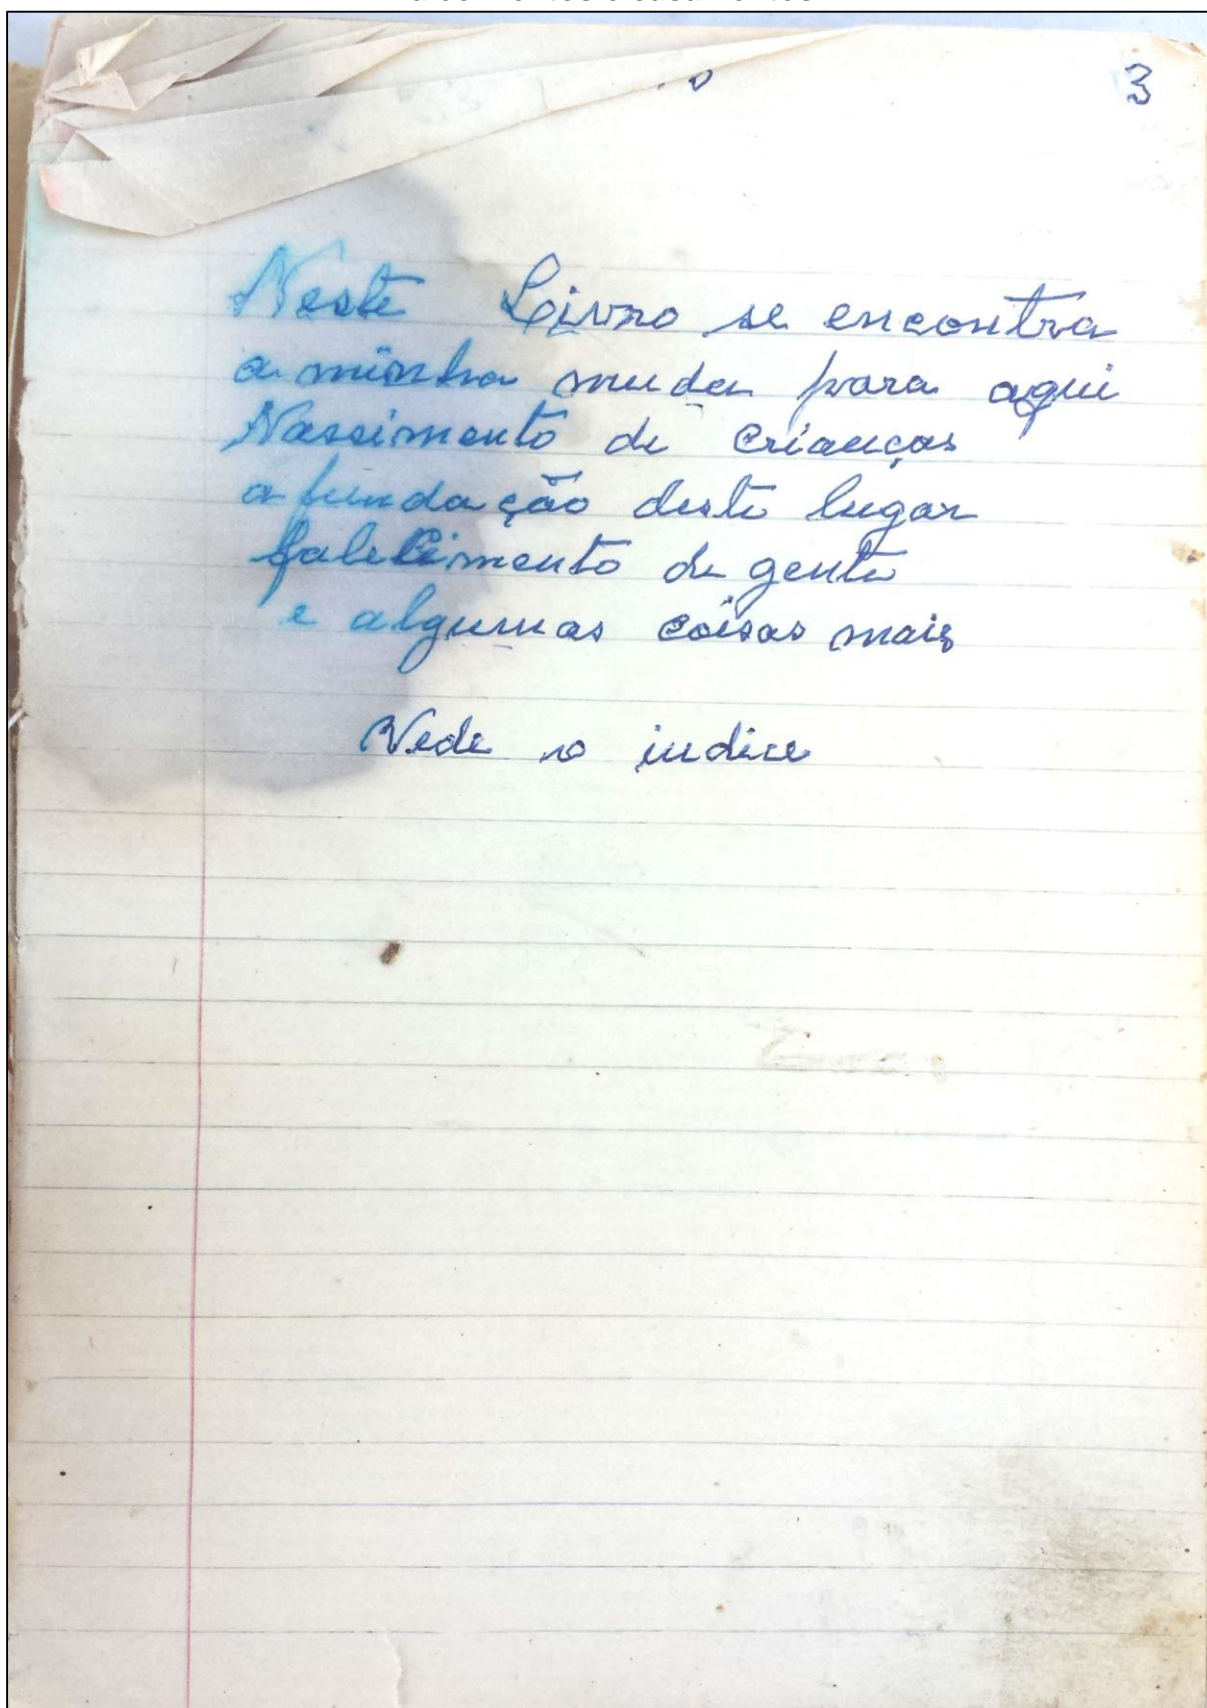 3
Neste Livro se encontra
a minha muda para aqui
Nascimento de Crianças
a fundação deste lugar
falecimento de gente
e algumas coisas mais
Vede o indice